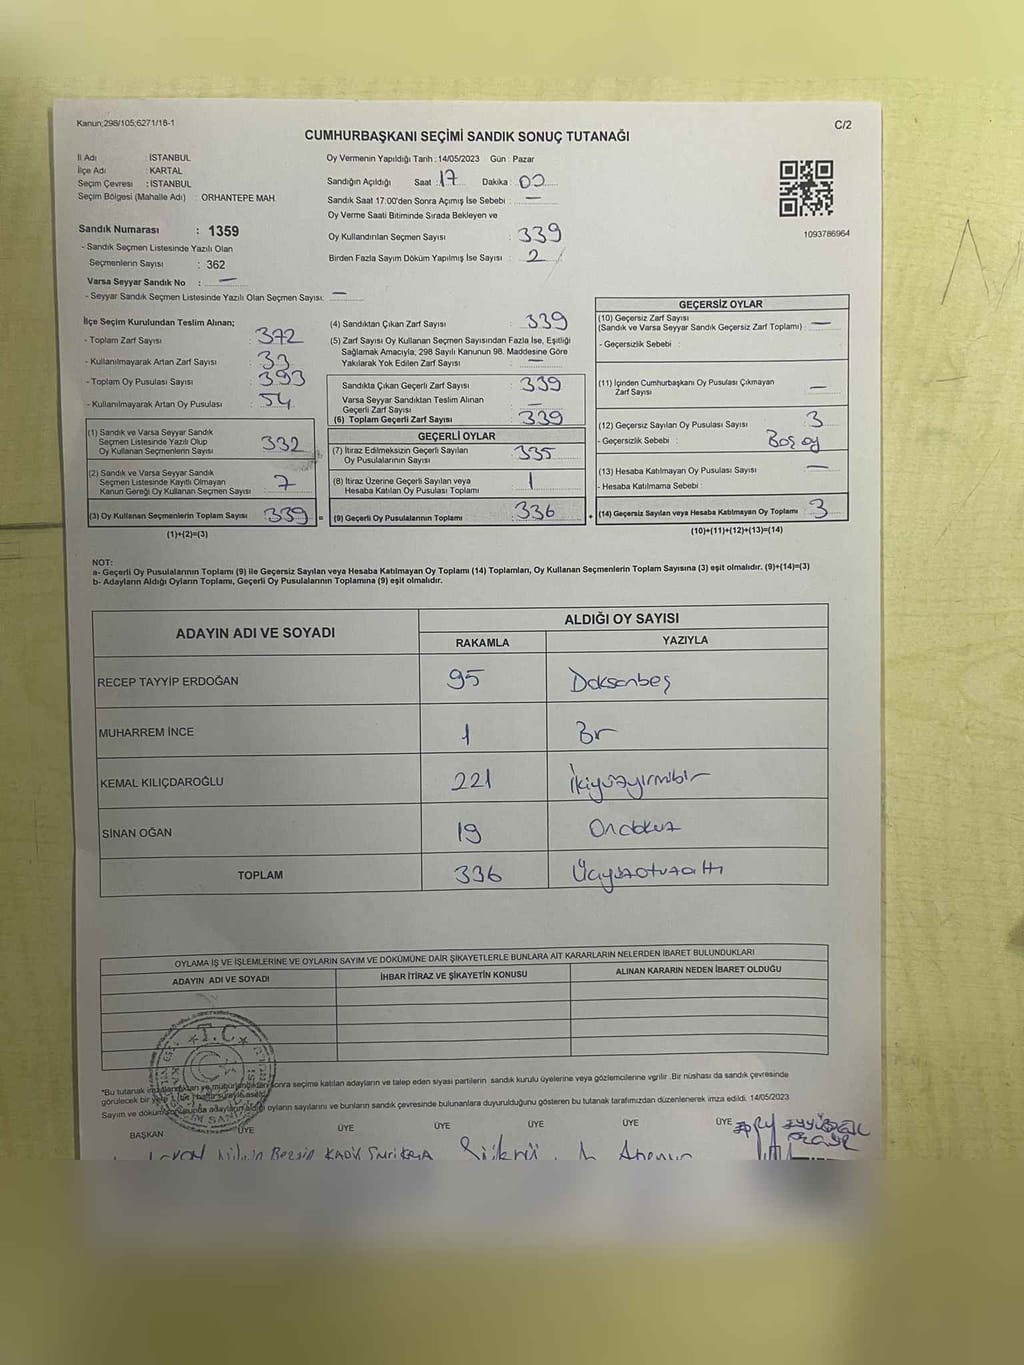 Kanun;298/105;6271/18-1
C/2
CUMHURBAŞKANI SEÇİMİ SANDIK SONUÇ TUTANAĞI
İl Adı : İSTANBUL
İlçe Adı : KARTAL
Seçim Çevresi : İSTANBUL
Seçim Bölgesi (Mahalle Adı) : ORHANTEPE MAH.
Sandık Numarası : 1359
- Sandık Seçmen Listesinde Yazılı Olan
Seçmenlerin Sayısı : 362
Varsa Seyyar Sandık No : —
- Seyyar Sandık Seçmen Listesinde Yazılı Olan Seçmen Sayısı: —
Oy Vermenin Yapıldığı Tarih : 14/05/2023 Gün : Pazar
Sandığın Açıldığı Saat : 17 Dakika : 00
Sandık Saat 17:00'den Sonra Açımış İse Sebebi : —
Oy Verme Saati Bitiminde Sırada Bekleyen ve
Oy Kullandırılan Seçmen Sayısı : 339
Birden Fazla Sayım Döküm Yapılmış İse Sayısı : 2
1093786964
İlçe Seçim Kurulundan Teslim Alınan;
- Toplam Zarf Sayısı : 372
- Kullanılmayarak Artan Zarf Sayısı : 33
- Toplam Oy Pusulası Sayısı : 393
- Kullanılmayarak Artan Oy Pusulası : 54
(1) Sandık ve Varsa Seyyar Sandık
Seçmen Listesinde Yazılı Olup
Oy Kullanan Seçmenlerin Sayısı 332
(2) Sandık ve Varsa Seyyar Sandık
Seçmen Listesinde Kayıtlı Olmayan
Kanun Gereği Oy Kullanan Seçmen Sayısı 7
(3) Oy Kullanan Seçmenlerin Toplam Sayısı 339 =
(1)+(2)=(3)
(4) Sandıktan Çıkan Zarf Sayısı : 339
(5) Zarf Sayısı Oy Kullanan Seçmen Sayısından Fazla İse, Eşitliği
Sağlamak Amacıyla; 298 Sayılı Kanunun 98. Maddesine Göre
Yakılarak Yok Edilen Zarf Sayısı : —
Sandıkta Çıkan Geçerli Zarf Sayısı : 339
Varsa Seyyar Sandıktan Teslim Alınan
Geçerli Zarf Sayısı : —
(6) Toplam Geçerli Zarf Sayısı : 339
GEÇERLİ OYLAR
(7) İtiraz Edilmeksizin Geçerli Sayılan
Oy Pusulalarının Sayısı : 335
(8) İtiraz Üzerine Geçerli Sayılan veya
Hesaba Katılan Oy Pusulası Toplamı : 1
(9) Geçerli Oy Pusulalarının Toplamı : 336 +
GEÇERSİZ OYLAR
(10) Geçersiz Zarf Sayısı
(Sandık ve Varsa Seyyar Sandık Geçersiz Zarf Toplamı) : —
- Geçersizlik Sebebi :
(11) İçinden Cumhurbaşkanı Oy Pusulası Çıkmayan
Zarf Sayısı —
(12) Geçersiz Sayılan Oy Pusulası Sayısı : 3
- Geçersizlik Sebebi : Boş oy
(13) Hesaba Katılmayan Oy Pusulası Sayısı : —
- Hesaba Katılmama Sebebi :
(14) Geçersiz Sayılan veya Hesaba Katılmayan Oy Toplamı : 3
(10)+(11)+(12)+(13)=(14)
NOT:
a- Geçerli Oy Pusulalarının Toplamı (9) ile Geçersiz Sayılan veya Hesaba Katılmayan Oy Toplamı (14) Toplamları, Oy Kullanan Seçmenlerin Toplam Sayısına (3) eşit olmalıdır. (9)+(14)=(3)
b- Adayların Aldığı Oyların Toplamı, Geçerli Oy Pusulalarının Toplamına (9) eşit olmalıdır.
ADAYIN ADI VE SOYADI ALDIĞI OY SAYISI
RAKAMLA YAZIYLA
RECEP TAYYİP ERDOĞAN 95 Doksanbeş
MUHARREM İNCE 1 Bir
KEMAL KILIÇDAROĞLU 221 İkiyüzyirmibir
SİNAN OĞAN 19 Ondokuz
TOPLAM 336 Üçyüzotuzaltı
OYLAMA İŞ VE İŞLEMLERİNE VE OYLARIN SAYIM VE DÖKÜMÜNE DAİR ŞİKAYETLERLE BUNLARA AİT KARARLARIN NELERDEN İBARET BULUNDUKLARI
ADAYIN ADI VE SOYADI İHBAR İTİRAZ VE ŞİKAYETİN KONUSU ALINAN KARARIN NEDEN İBARET OLDUĞU
T.C.
*Bu tutanak sonra seçime katılan adayların ve talep eden siyasi partilerin sandık kurulu üyelerine veya gözlemcilerine verilir. Bir nüshası da sandık çevresinde
görülecek bir
Sayım ve döküm sonucunda adayların aldığı oyların sayılarını ve bunların sandık çevresinde bulunanlara duyurulduğunu gösteren bu tutanak tarafımızdan düzenlenerek imza edildi. 14/05/2023
BAŞKAN ÜYE ÜYE ÜYE ÜYE ÜYE ÜYE